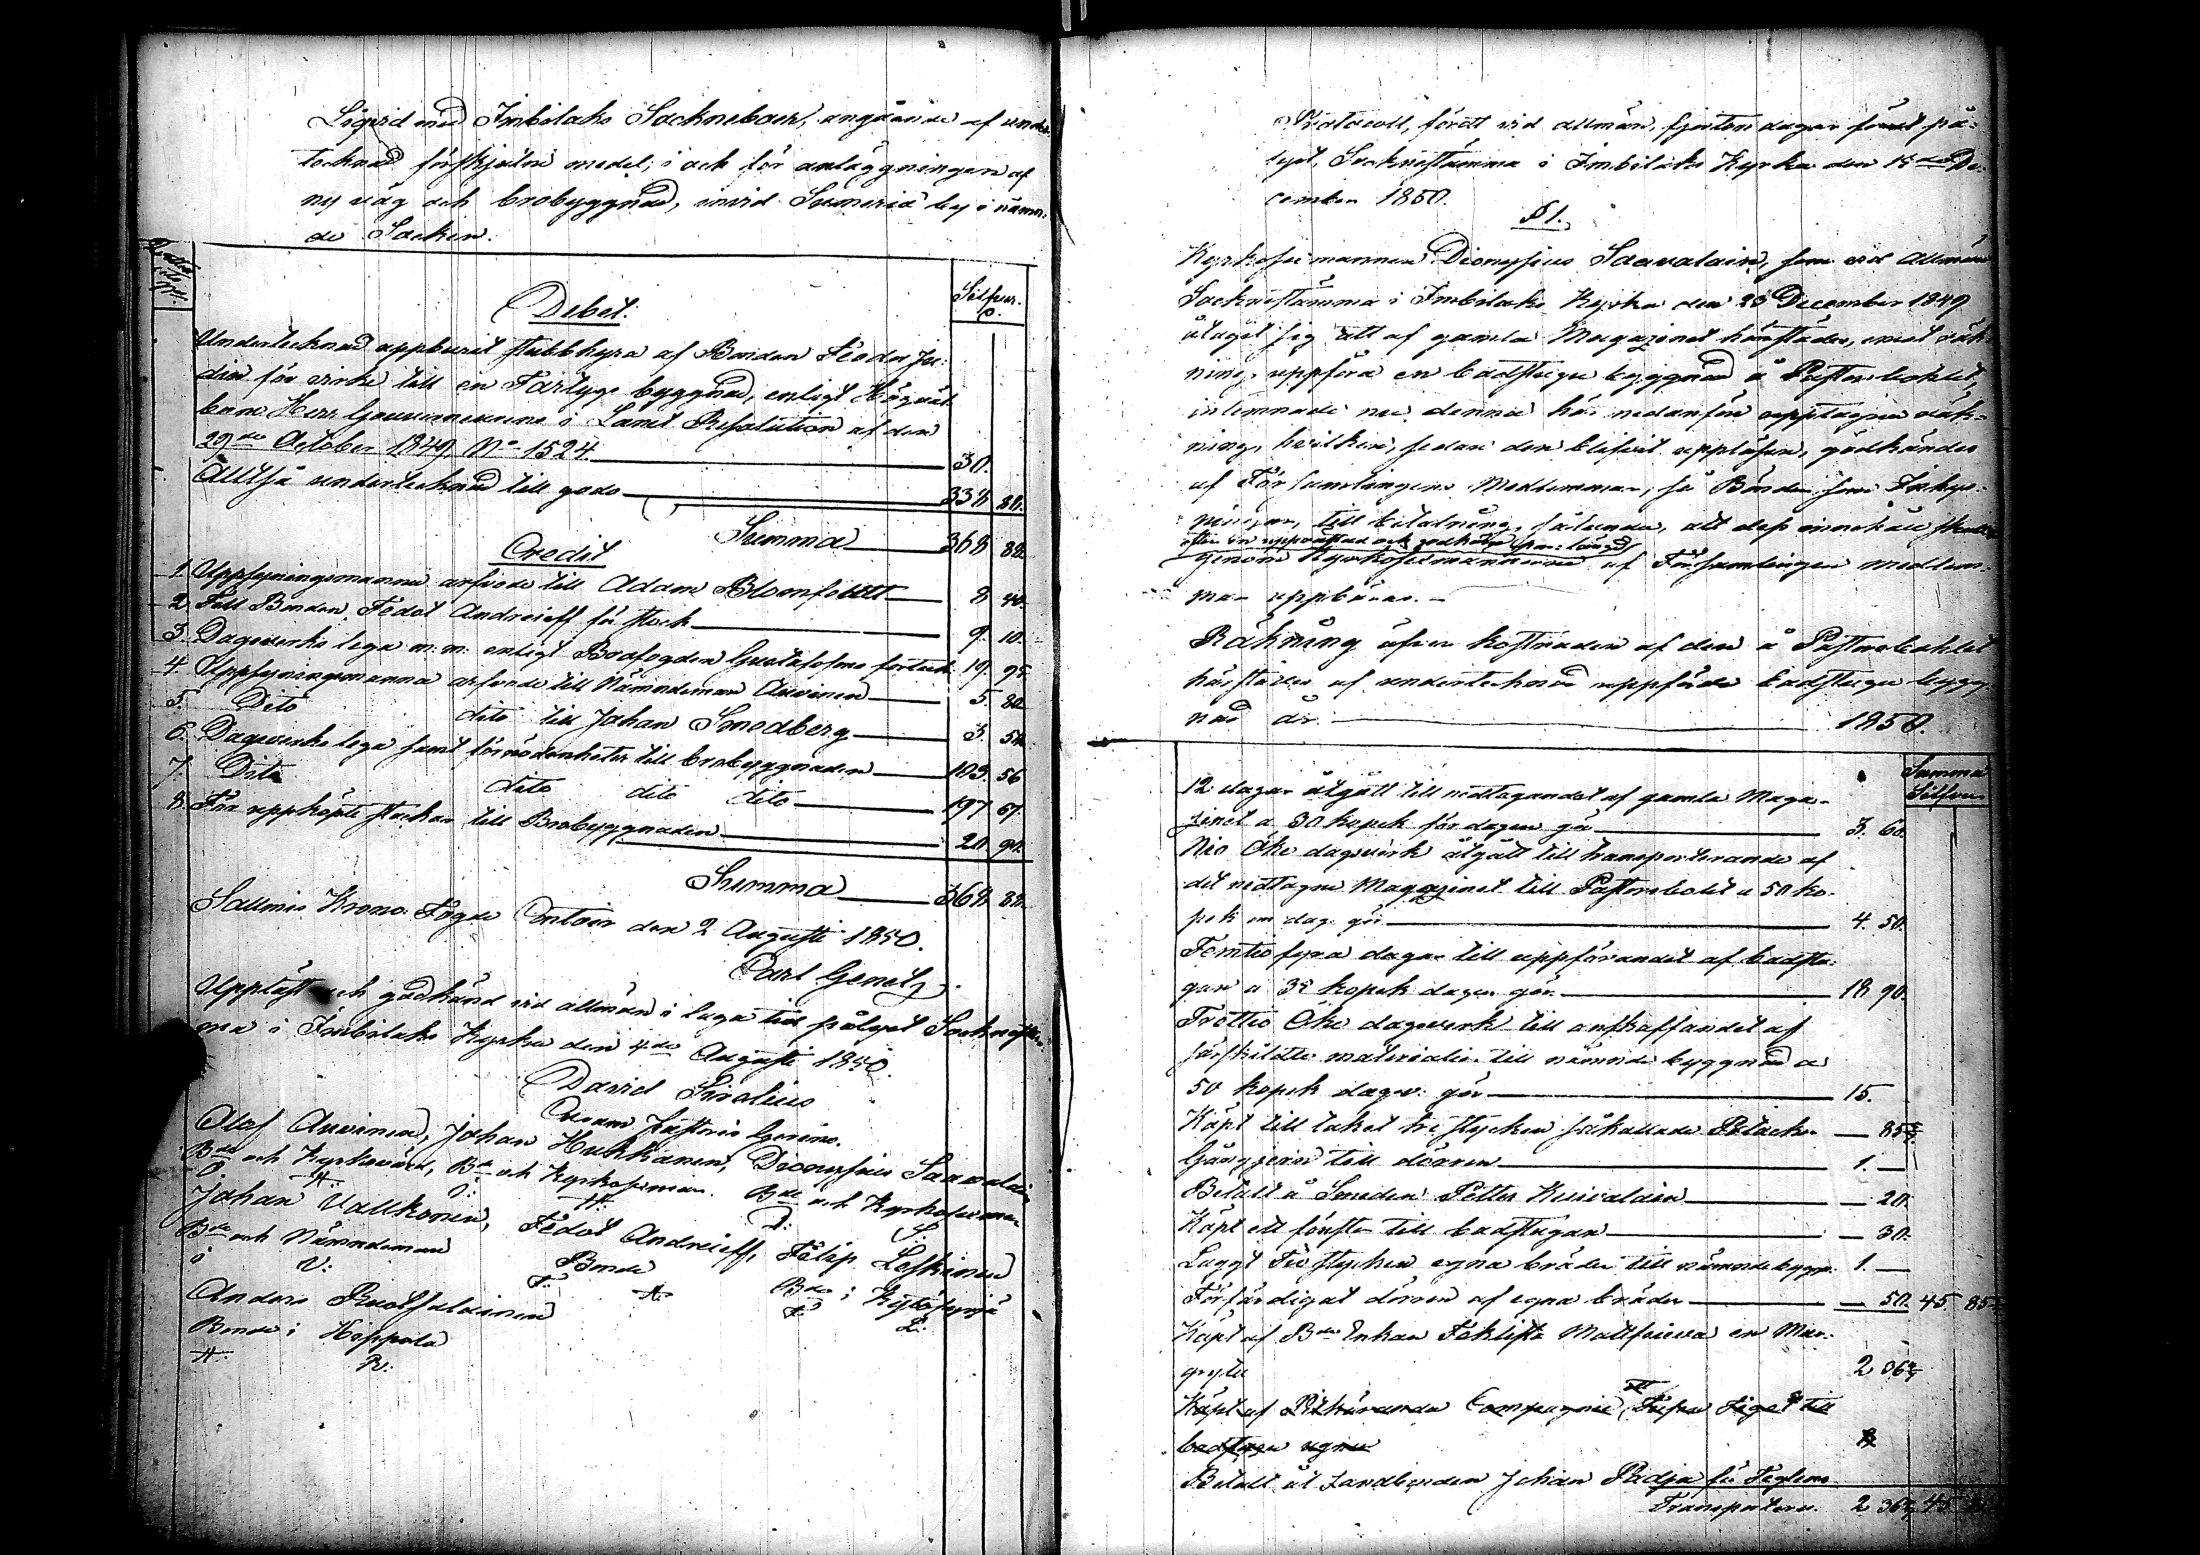 Liqvid med Imbilaks Sockneboer, angående af under-
tecknad förskjutne medel, i och för anläggningen af
ny väg och brobyggnad, invid Sumeria by i nämn-
de Socken.
Silfver.
Debet.
Undertecknad uppburit stubbhyra af Bonden Feodor Ju-
din för virke till en Fartygs byggnad, enligt Högväl-
borne Herr Gouverneurens i Länet Resolution af den
29de October 1849, No 1524 30.
Alltså undertecknad till godo 338 88.
Summa 368 88.
Credit
1. Uppsyningsmanna arfvode till Adam Blomfeldt 8 40.
2. Till Bonden Fedot Andreieff för stock 9. 10.
3. Dagsverks lega m: m: enligt Brofogden Gustafssons förteck. 19. 95.
4. Uppsyningsmanna arfvode till Nämndeman Auvinen 5. 80.
5. Dito dito till Johan Smedberg 3. 50.
6. Dagsverks lega samt förnödenheter till brobyggnaden 103. 56
7. Dito dito dito dito 197 67.
8. För uppköpte stockar till Brobyggnaden 20. 90.
Summa 368 88.
Sallmis Krono Fogde Contoir den 2 Augusti 1850.
Carl Genetz.
Uppläst och godkänd vid allmän i laga tid pålyst Socknestäm-
ma i Imbilaks Kyrka den 4de Augusti 1850.
David Sirelius
Olof Auvinen, Johan Hukkanen, Dionysius Saavalain
Bde och Kyrkovärd, Bde och Kyrkosexman. Bde och Kyrkosexman
O: A: J: H: D: S:
Johan Vallkonen, Fedot Andreieff, Filip Leskinen
Bde och Nämndeman Bonde Bde i Kytösyrjä
J: V: F: A: F: L:
Anders Ruotsalainen
Bonde i Hippola
A: R:
Protocoll, fördt vid allmän, fjorton dagar förut på-
lyst, Socknestämma i Imbilaks Kyrka den 15de De-
cember 1850.
§ 1.
Kyrkosexmannen Dionysius Saavalain, som vid Allmän
Socknestämma i Imbilaks Kyrka den 23 December 1849
åtagit sig att af gamla Magazinet härstädes, emot räk-
ning, uppföra en badstugu byggnad å Pastorsbohlet,
inlemnade nu denna här nedanför upptagne räk-
ning, hvilken, sedan den blifvit uppläsen, godkändes
af Församlingens Medlemmar, så Bönder som Inhys-
ningar, till betalning, sålunda, att dess innehåll skulle
efter en upprättad och godkänd längd
genom Kyrkosexmännerne af Församlingens medlem-
mar uppbäras.
Räkning öfver kostnaden af den å Pastorsbohlet
härstädes af undertecknad uppförde badstugu bygg-
nad år 1850.
Summa
Silfver
12 dagar åtgått till nedtagandet af gamla Maga-
zinet a 30 kopek för dagen gör 3. 60.
Nio Öke dagsverk åtgått till transporterande af
det nedtagne Magazinet till Pastorsbolet a 50 ko-
pek om dag. gör 4. 50.
Femtiofyra dagar till uppförandet af badstu-
gan a 35 kopek dagen gör 18 90.
Trettio Öke dagsverk till anskaffandet af
särskildte materialier till nämnde byggnad a
50 kopek dagsv: gör 15.
Köpt till taket tri stycken såkallade Potack 85 5/7
Gångjern till dörren 1. —
Betalt å Smeden Petter Kuivalain 20.
Köpt ett fönster till badstugan 30.
Laggt Tio stycken egna bräder till nämnde bygg. 1. —
Förfärdigat dörren af egna bräder 50. 45. 85
Köpt af Bde Enkan Feklista Mattfeieva en Mur-
gryta 2 06
Köpt af Pitkäranda Compagnie Tusen Tegel till
badstugu ugnen
Betalt åt Landbonden Johan Padja för Teglens
Transporteras 2 36 45